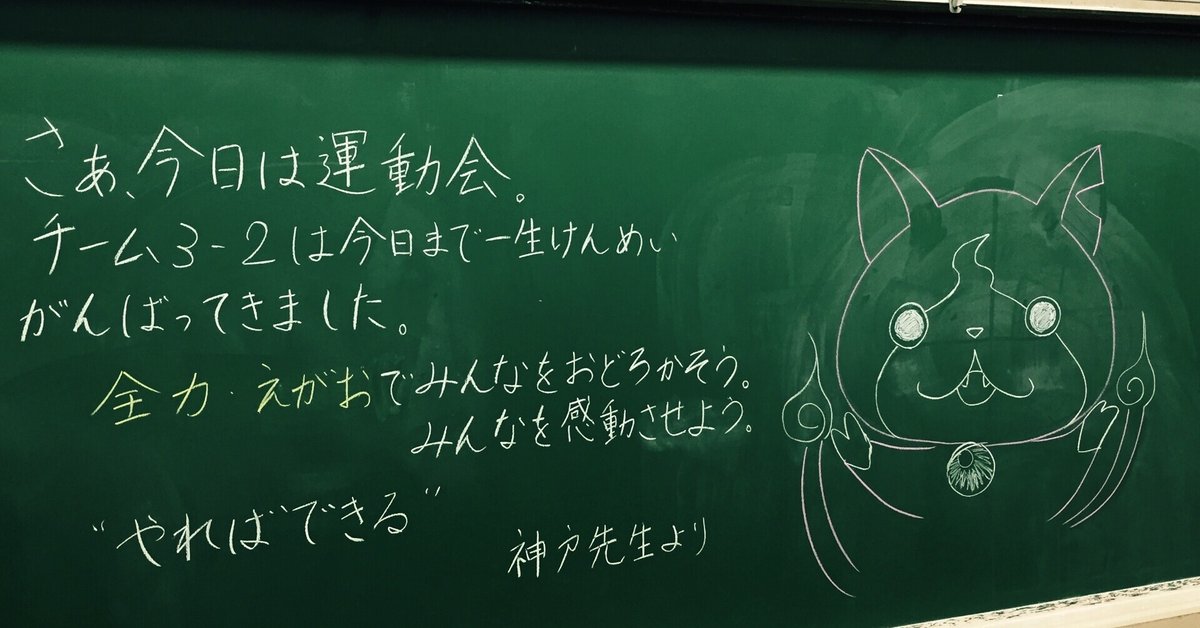 さあ、今日は運動会。
チーム3-2は今日まで一生けんめい
がんばってきました。
全力・えがおでみんなをおどろかそう。
みんなを感動させよう。
“やればできる”
神戸先生より